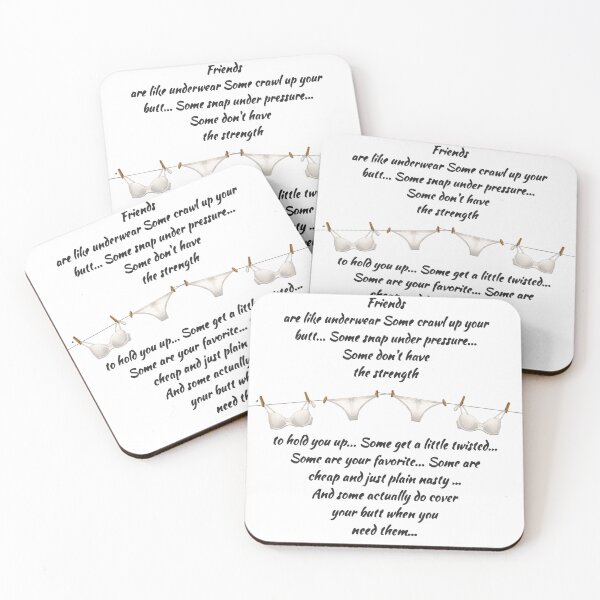 Friends
are like underwear Some crawl up your
butt... Some snap under pressure...
Some don't have
the strength
a little twisted...
Some
Friends
are like underwear Some crawl up your
butt... Some snap under pressure...
Some don't have
the strength
to hold you up... Some get a little twisted...
Some are your favorite... Some are
Friends
are like underwear Some crawl up your
butt... Some snap under pressure...
Some don't have
the strength
to hold you up... Some get a little
Some are your favorite...
cheap and just plain
And some actually
your butt
need
Friends
are like underwear Some crawl up your
butt... Some snap under pressure...
Some don't have
the strength
to hold you up... Some get a little twisted...
Some are your favorite... Some are
cheap and just plain nasty ...
And some actually do cover
your butt when you
need them...